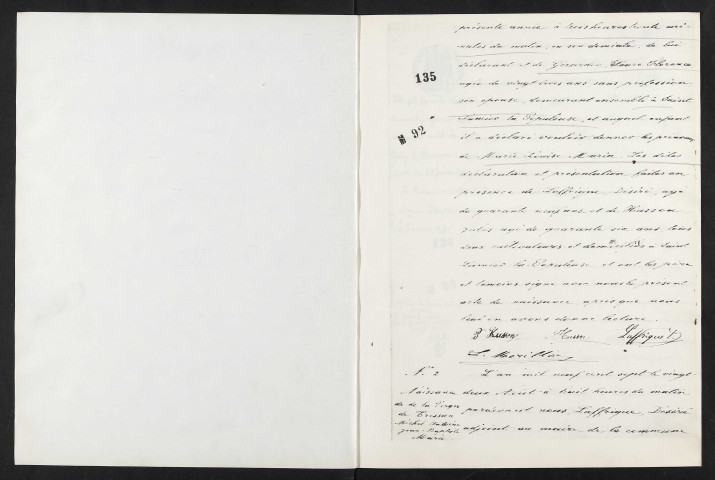 présente année à trois heures trente mi-
nutes du matin, en son domicile, de lui
déclarant et de Gérardin, Marie Florence
agée de vingt trois ans sans profession
135
son épouse, demurant ensemble à Saint
la Croyeuse, et auquel enfant
92
il a déclaré vouloir donner les prénoms
de Marie Louise Maria. Les dites
déclaration et présentation faites en
présence de Laffrique Désiré, agé
de quarante neuf ans et de Husson
Jules agé de quarante six ans tous
deux cultivateurs et domiciliés à Saint
et ont les père
et témoins signé avec nous le présent
acte de naissance après que nous
leur en avons donné lecture.
Husson Laffrique D
L.
N° 2
L'an mil neuf cent sept le vingt
Naissance
deux Août à huit heures du matin
de de la Vierge
pardevant nous Laffrique, Désiré
de
Michel Antoine
Jean-Baptiste
adjoint au maire de la commune
Marie